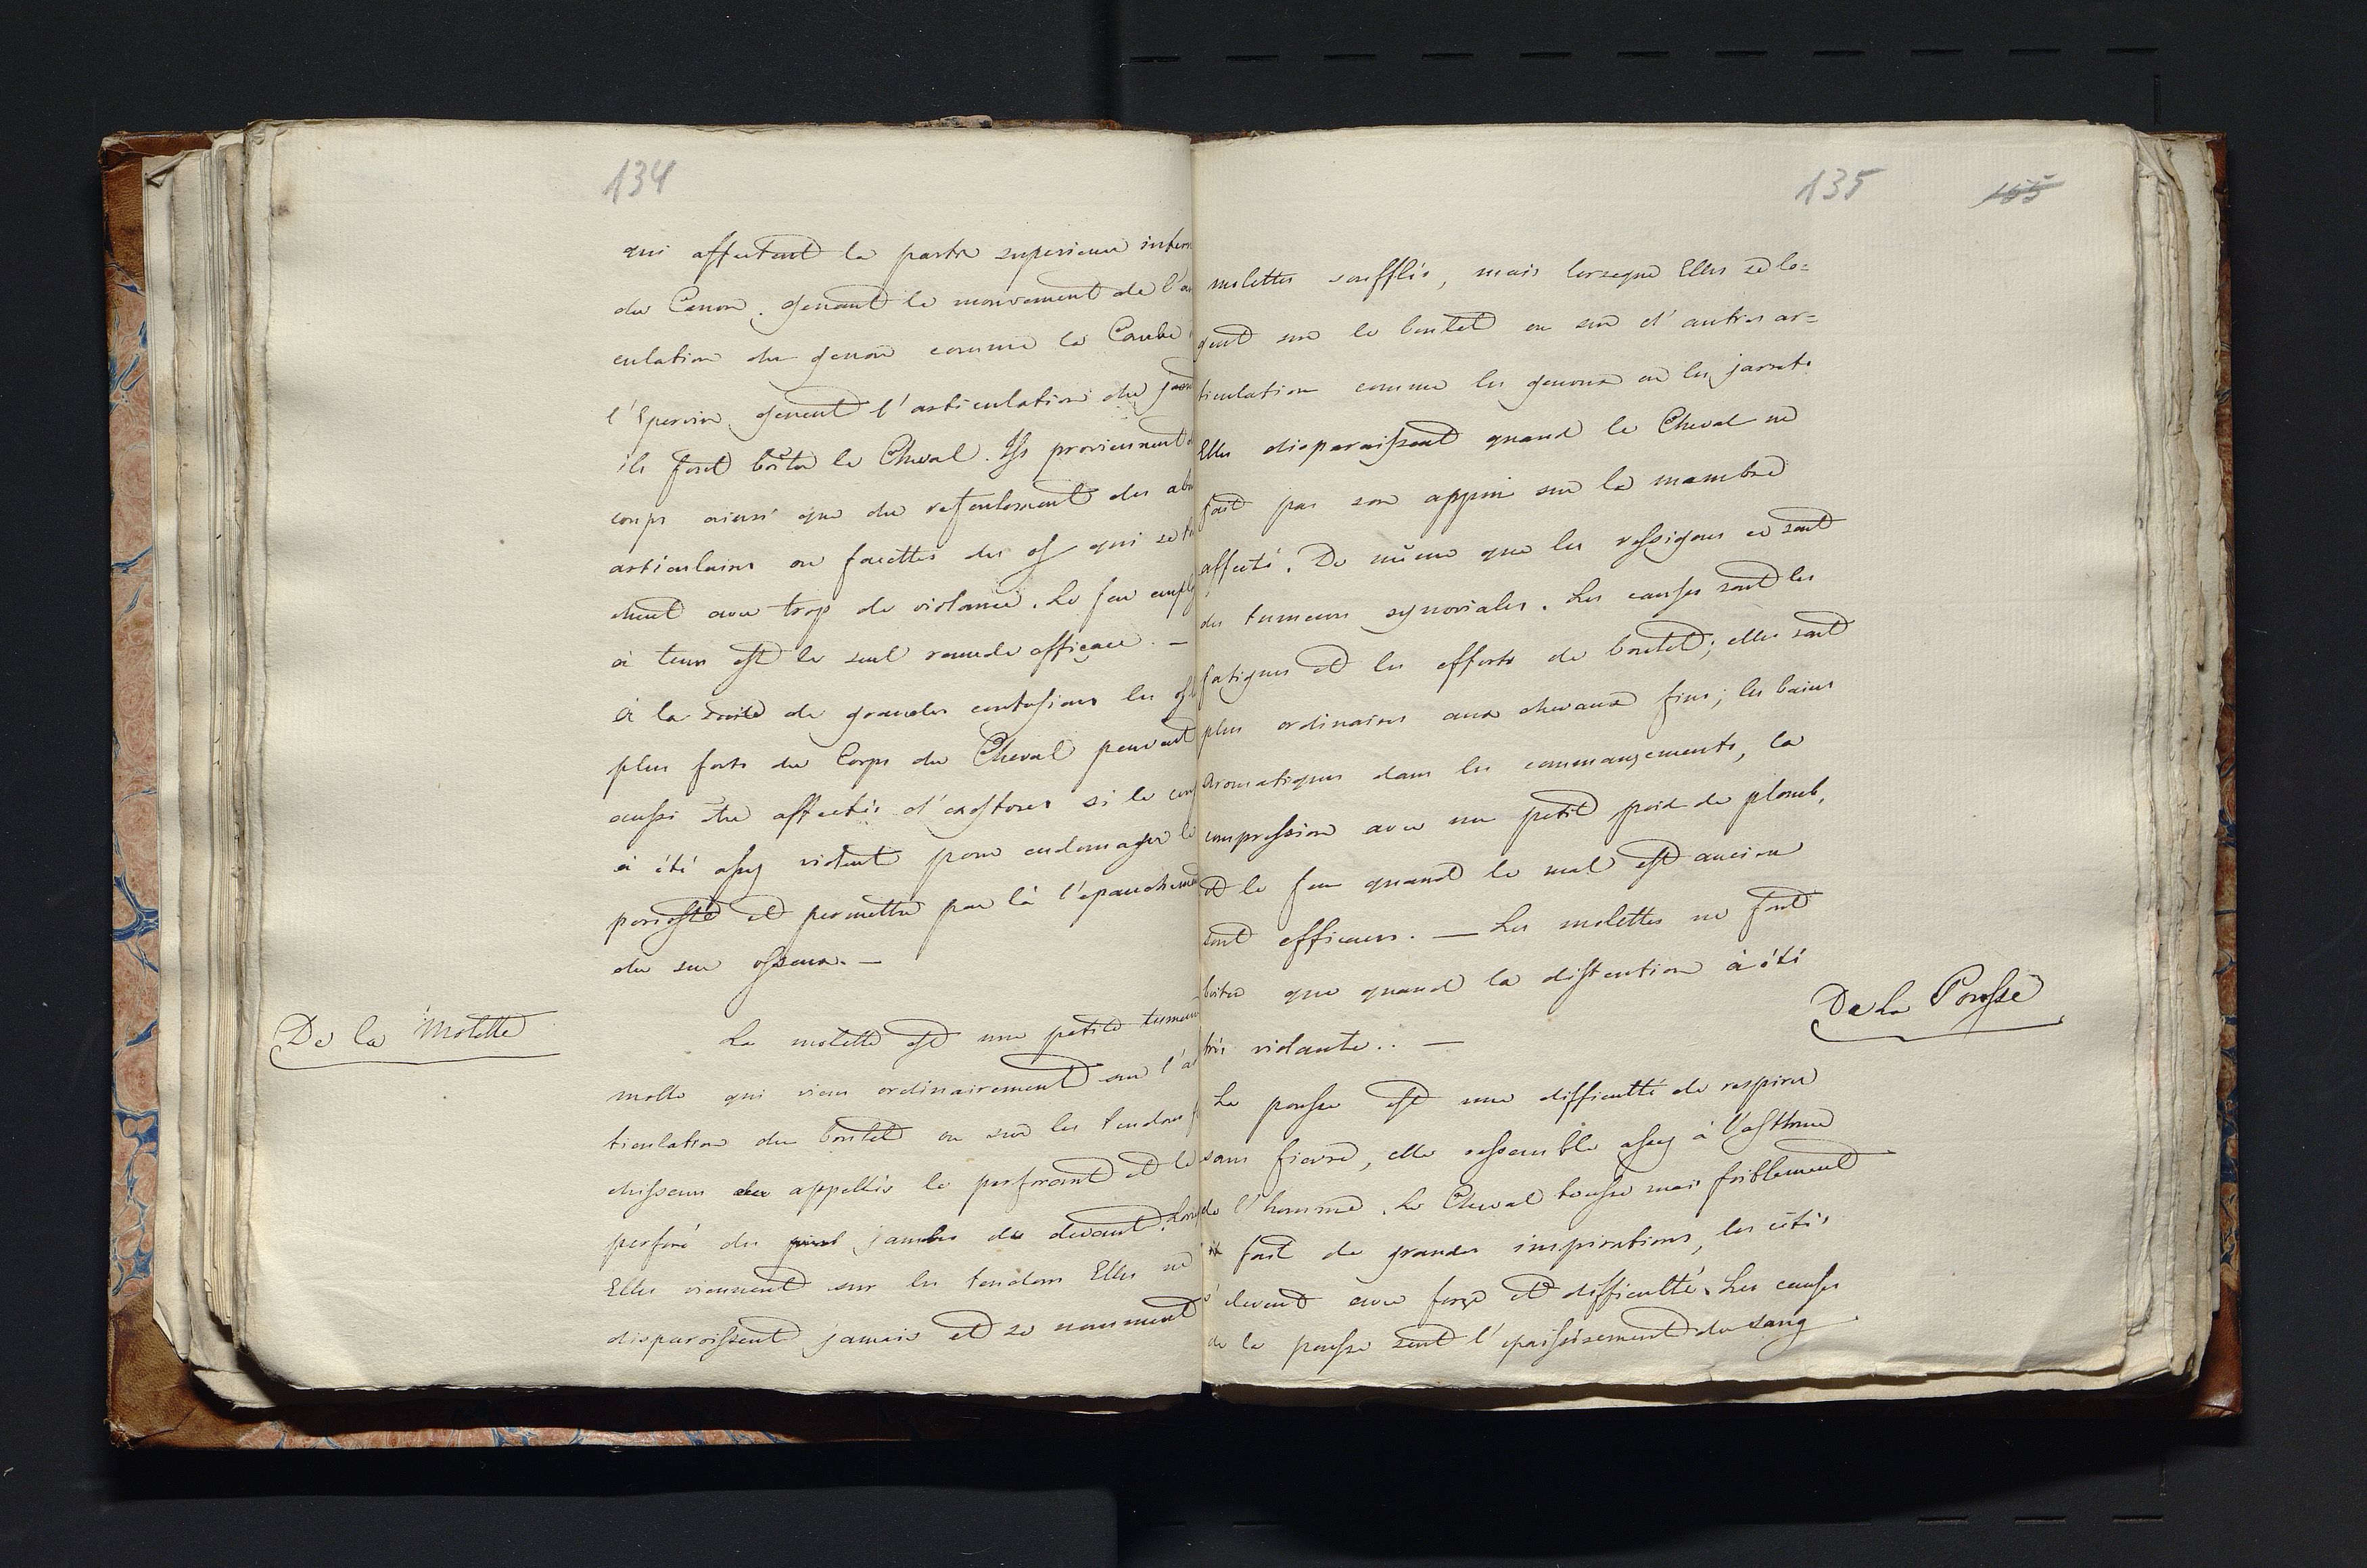 134
qui affectent la partie superieure intern
du Canon. genant le mouvement de l'ar
culation du genou comme la Courbe
l'Epervin genent l'articulation du jarr
ils font boîter le Cheval. Ils proviennent
coups ainsi que du refoulement des
articulaires ou facettes des os qui se
chent avec trop de violance. Le feu emplo
à tems est le seul remede efficace. —
à la suite de grandes contusions les os
plus forts du Corps du Cheval peuvent
aussi être affectés d'exostoses si le
à été assez violent pour endomager le
perioste et permettre par là l'epanchemen
du suc osseux. —
De la Molette
La molette est une petite tumeur
molle qui vien ordinairement sur l'ar
ticulation du boulet ou sur les tendons
chisseurs appellés le perforant et le
perforé des jambes de devant. Lors
Elles viennent sur les tendons Elles ne
disparoissent jamais et se nomment
135
165
molettes soufflés, mais lorseque Elles se lo=
gent sur le boulet ou sur d'autres ar=
ticulation comme les genoux ou les jarrets
Elles disparaissent quand le Cheval ne
fait pas son appui sur la mambre
affecté. De même que les vessigons ce sont
des tumeurs synoviales. Les causes sont les
fatigues et les efforts de boulet; elles sont
plus ordinaires aux chevaux fins; les bains
aromatiques dans les commançements, la
compression avec un petit poid de plomb,
et le feu quand le mal est ancien
sont efficaces. — Les molettes ne font
boiter que quand la distention à été
très violante.. —
De la Pousse
La pousse est une difficulté de respirer
sans fievre, elle ressemble assez à l'asthme
de l'homme. Le Cheval tousse mais foiblement
il fait de grandes inspirations, les côtés
s'elevent avec force et difficulté. Les causes
de la pousse sont l'epaississement du sang